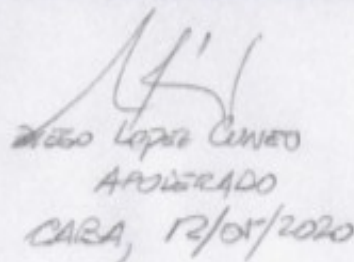 DIEGO LOPEZ CUNEO
APODERADO
CABA, 12/05/2020